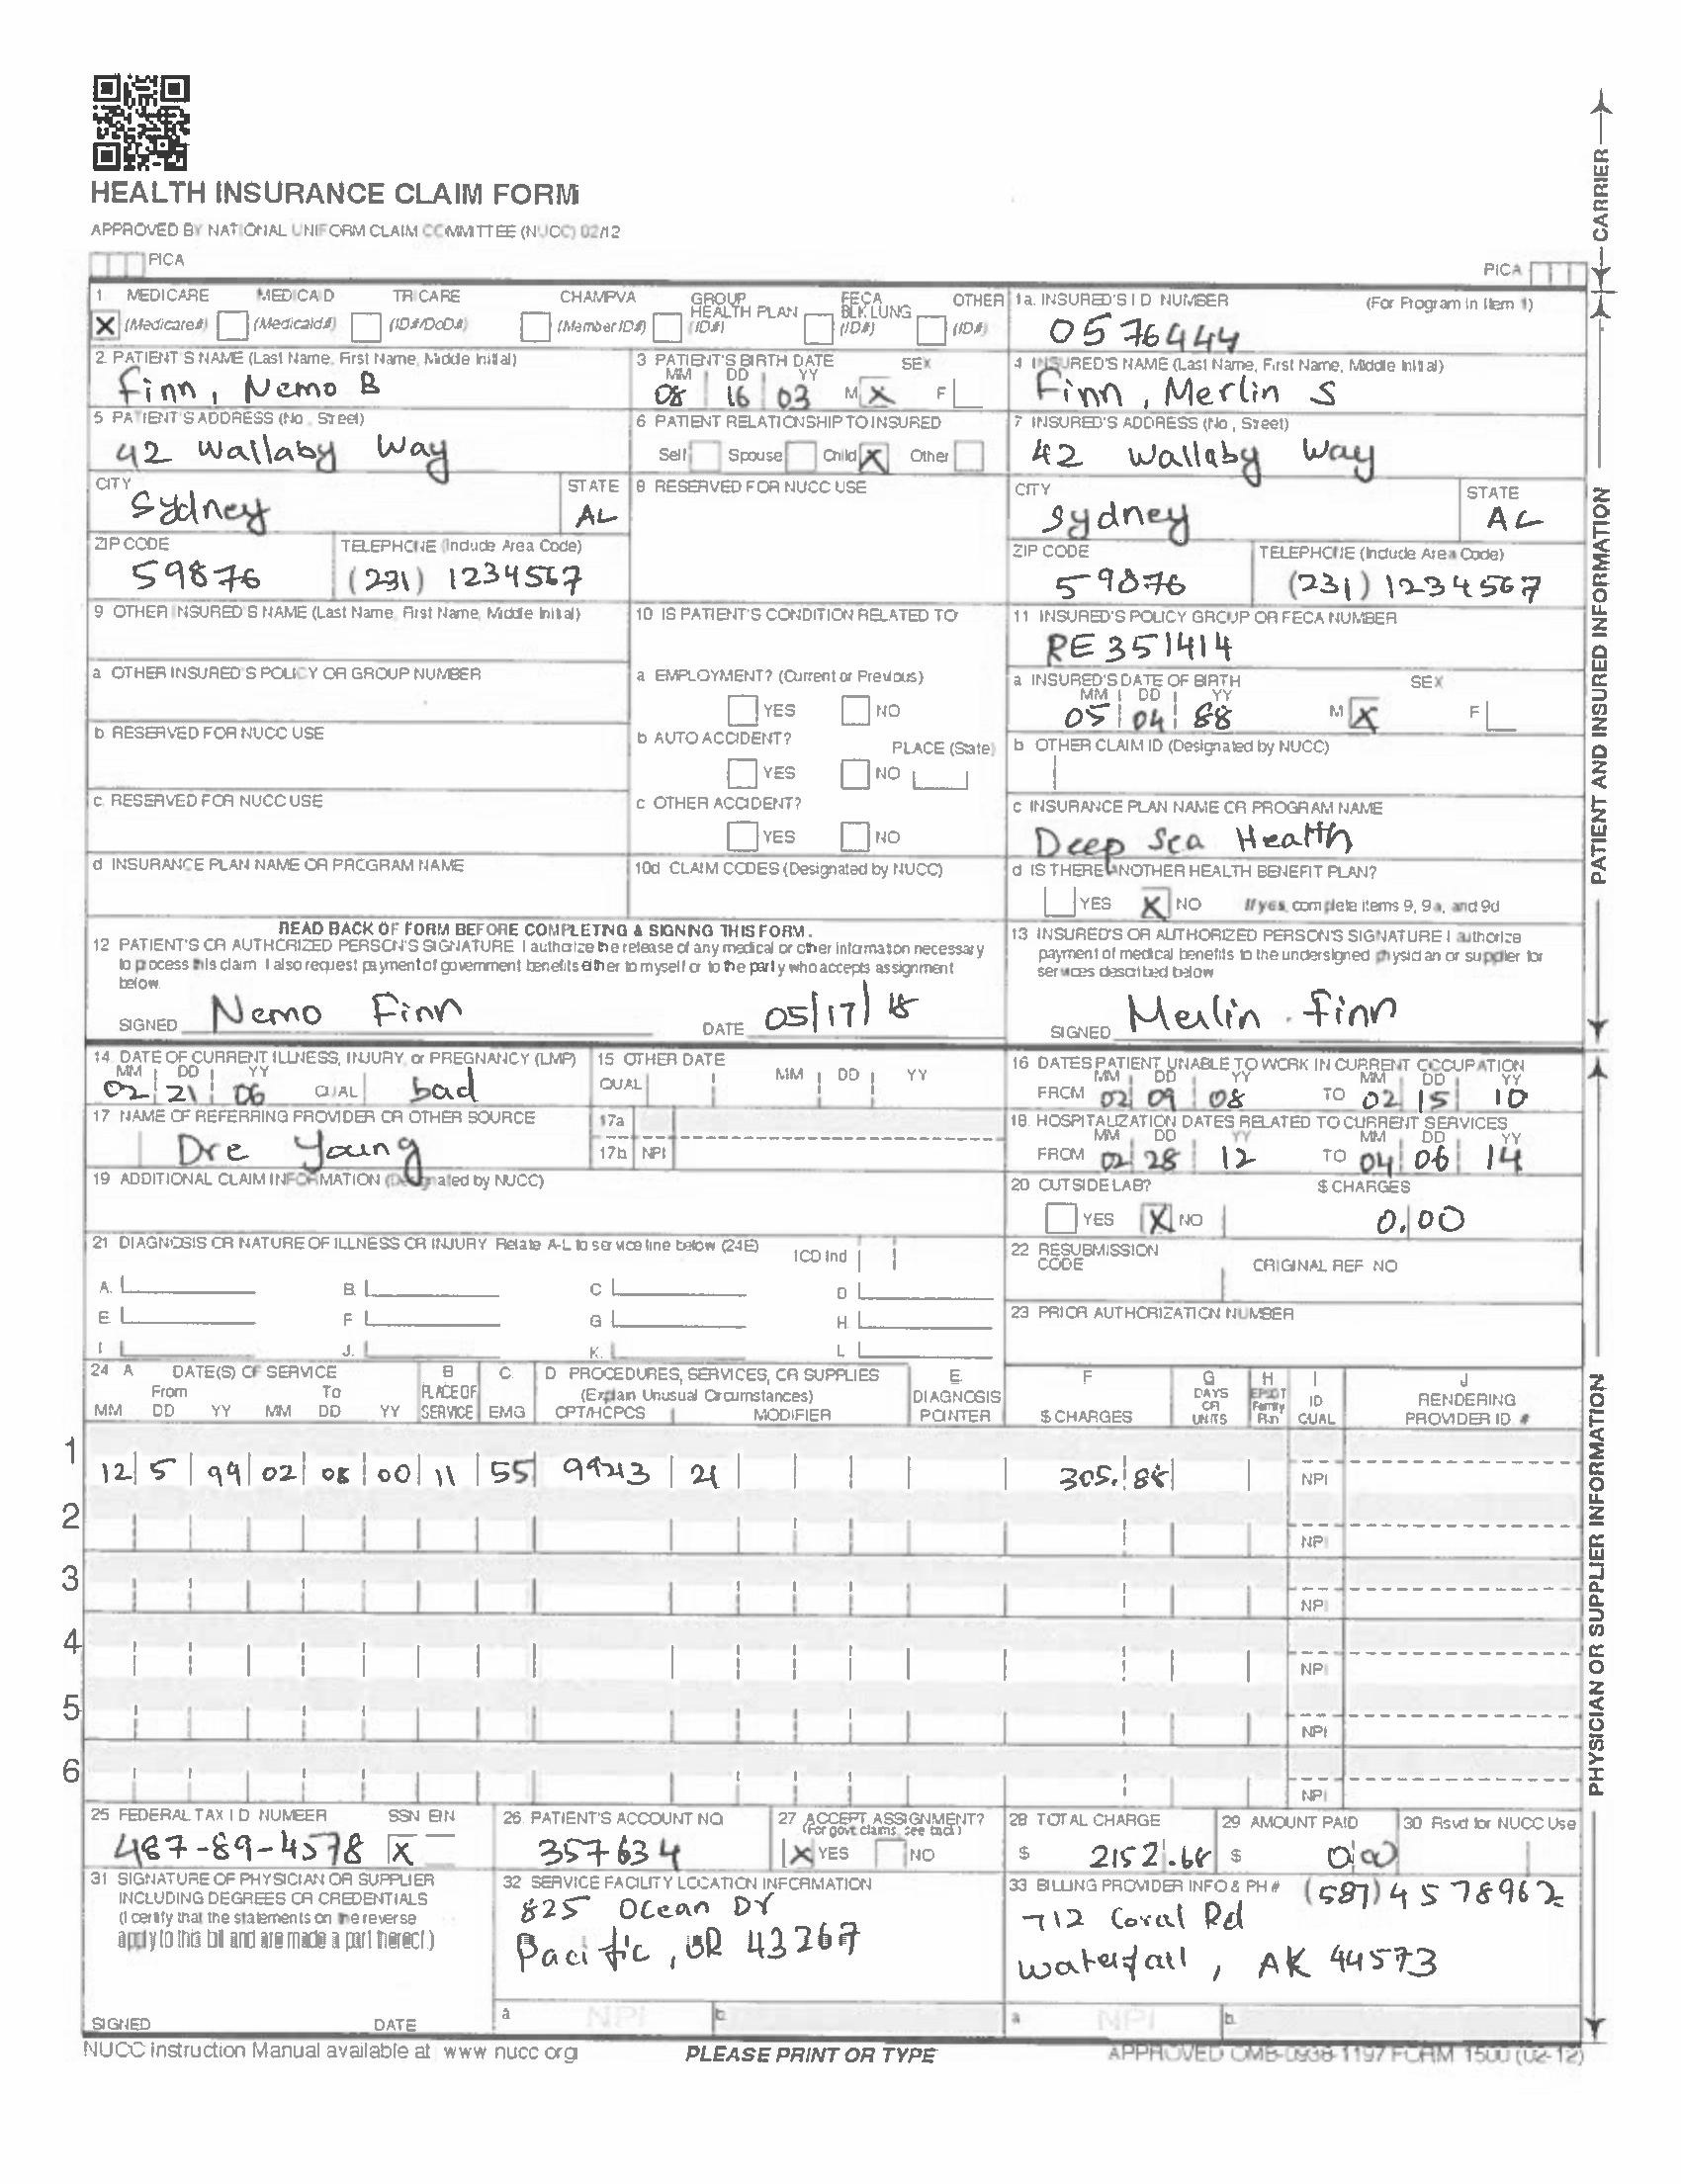 HEALTH INSURANCE CLAIM FORM
APPROVED BY NATIONAL UNIFORM CLAIM COMMITTEE (NUCC) 02/12
PICA
PICA
CARRIER
1 MEDICARE MEDICAID TRICARE CHAMPVA GROUP HEALTH PLAN FECA BLK LUNG OTHER
X (Medicare#) (Medicaid#) (ID#/DoD#) (Member ID#) (ID#) (ID#) (ID#)
1a. INSURED'S I D NUMBER (For Program in Item 1)
0576444
2. PATIENT'S NAME (Last Name, First Name, Middle Initial)
Finn, Nemo B
3 PATIENT'S BIRTH DATE SEX
MM DD YY
08 16 03 M X F
4 INSURED'S NAME (Last Name, First Name, Middle Initial)
Finn, Merlin S
5 PATIENT'S ADDRESS (No , Street)
42 Wallaby Way
6 PATIENT RELATIONSHIP TO INSURED
Self Spouse Child X Other
7 INSURED'S ADDRESS (No , Street)
42 Wallaby Way
CITY STATE
Sydney AL
8 RESERVED FOR NUCC USE
CITY STATE
Sydney AL
ZIP CODE TELEPHONE (Include Area Code)
59876 (231) 1234567
ZIP CODE TELEPHONE (Include Area Code)
59876 (231) 1234567
9 OTHER INSURED'S NAME (Last Name, First Name, Middle Initial)
10 IS PATIENT'S CONDITION RELATED TO
11 INSURED'S POLICY GROUP OR FECA NUMBER
RE 351414
a OTHER INSURED'S POLICY OR GROUP NUMBER
a EMPLOYMENT? (Current or Previous)
YES NO
a INSURED'S DATE OF BIRTH SEX
MM DD YY
05 04 88 M X F
b RESERVED FOR NUCC USE
b AUTO ACCIDENT? PLACE (State)
YES NO
b OTHER CLAIM ID (Designated by NUCC)
c. RESERVED FOR NUCC USE
c OTHER ACCIDENT?
YES NO
c INSURANCE PLAN NAME OR PROGRAM NAME
Deep Sea Health
d INSURANCE PLAN NAME OR PROGRAM NAME
10d CLAIM CODES (Designated by NUCC)
d IS THERE ANOTHER HEALTH BENEFIT PLAN?
YES X NO If yes, complete items 9, 9a, and 9d
PATIENT AND INSURED INFORMATION
READ BACK OF FORM BEFORE COMPLETING & SIGNING THIS FORM.
12 PATIENT'S OR AUTHORIZED PERSON'S SIGNATURE I authorize the release of any medical or other information necessary
to process this claim I also request payment of government benefits either to myself or to the party who accepts assignment
below.
SIGNED Nemo Finn DATE 05/17/18
13 INSURED'S OR AUTHORIZED PERSON'S SIGNATURE I authorize
payment of medical benefits to the undersigned physician or supplier for
services described below
SIGNED Merlin . Finn
14 DATE OF CURRENT ILLNESS, INJURY, or PREGNANCY (LMP)
MM DD YY
02 21 06 QUAL bad
15 OTHER DATE
QUAL MM DD YY
16 DATES PATIENT UNABLE TO WORK IN CURRENT OCCUPATION
MM DD YY MM DD YY
FROM 02 09 08 TO 02 15 10
17 NAME OF REFERRING PROVIDER OR OTHER SOURCE
Dre Young
17a
17b NPI
18. HOSPITALIZATION DATES RELATED TO CURRENT SERVICES
MM DD YY MM DD YY
FROM 02 28 12 TO 04 06 14
19 ADDITIONAL CLAIM INFORMATION (Designated by NUCC)
20 OUTSIDE LAB? $ CHARGES
YES X NO 0.00
21 DIAGNOSIS OR NATURE OF ILLNESS OR INJURY Relate A-L to service line below (24E) ICD Ind
A. B. C D
E F G H.
I. J. K. L
22 RESUBMISSION CODE ORIGINAL REF NO
23 PRIOR AUTHORIZATION NUMBER
24 A DATE(S) OF SERVICE B C. D PROCEDURES, SERVICES, OR SUPPLIES E. F G H I J
From To PLACE OF (Explain Unusual Circumstances) DIAGNOSIS DAYS OR UNITS EPSDT Family Plan ID RENDERING
MM DD YY MM DD YY SERVICE EMG CPT/HCPCS MODIFIER POINTER $ CHARGES QUAL PROVIDER ID #
1 12 5 99 02 08 00 11 55 99213 21 305. 88 NPI
2 NPI
3 NPI
4 NPI
5 NPI
6 NPI
PHYSICIAN OR SUPPLIER INFORMATION
25 FEDERAL TAX I D NUMBER SSN EIN
487-89-4578 X
26. PATIENT'S ACCOUNT NO
357634
27 ACCEPT ASSIGNMENT?
(For govt claims, see back)
X YES NO
28 TOTAL CHARGE
$ 2152.68
29 AMOUNT PAID
$ 0 00
30 Rsvd for NUCC Use
31 SIGNATURE OF PHYSICIAN OR SUPPLIER
INCLUDING DEGREES OR CREDENTIALS
(I certify that the statements on the reverse
apply to this bill and are made a part thereof )
SIGNED DATE
32 SERVICE FACILITY LOCATION INFORMATION
825 Ocean Dr
Pacific, OR 43267
a NPI b
33 BILLING PROVIDER INFO & PH # (587) 4578962
712 Coral Rd
Waterfall, AK 44573
a NPI b.
NUCC Instruction Manual available at www nucc org
PLEASE PRINT OR TYPE
APPROVED OMB-0938-1197 FORM 1500 (02-12)